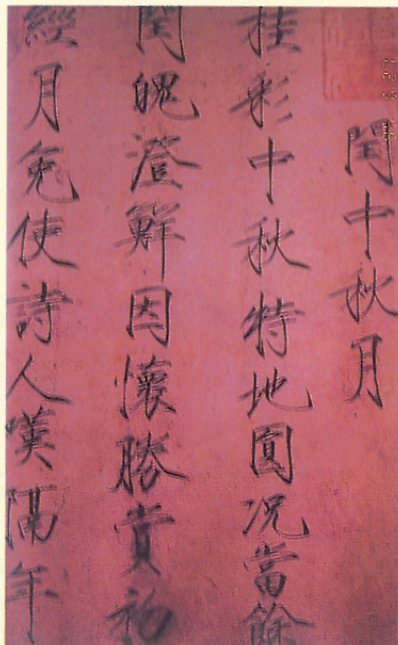 閏中秋月
桂彩中秋特地圓況當餘
閏魄澄鮮因懷勝賞初
經月免使詩人嘆隔年